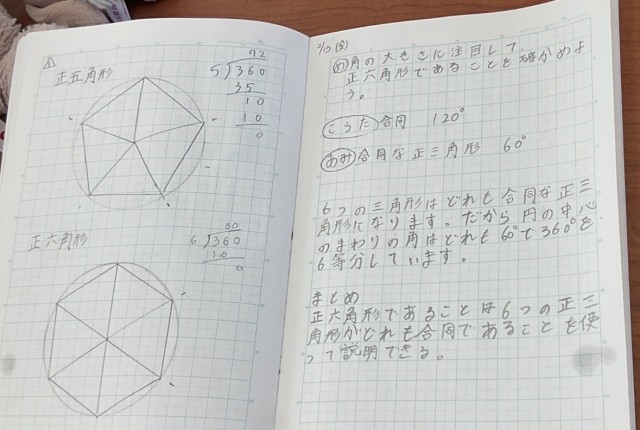 正五角形
72
5)360
35
10
10
0
正六角形
60
6)360
36
0
2/15(金)
め 角の大きさに注目して
正六角形であることを確かめよ
う。
こうた 合同 120°
あみ 合同な正三角形 60°
6つの三角形はどれも合同な正三
角形になります。だから円の中心
のまわりの角はどれも60°で360°を
6等分しています。
まとめ
正六角形であることは6つの正三
角形がどれも合同であることを使
って説明できる。